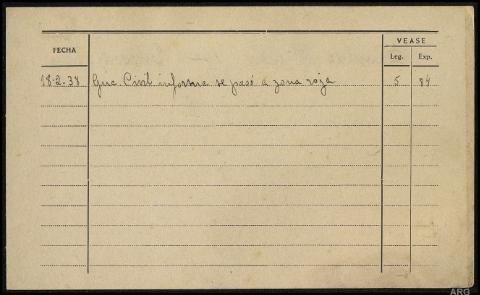 FECHA
VEASE
Leg. Exp.
18-2-38 Gua. Civil informa se pasó a zona roja 5 84
ARG